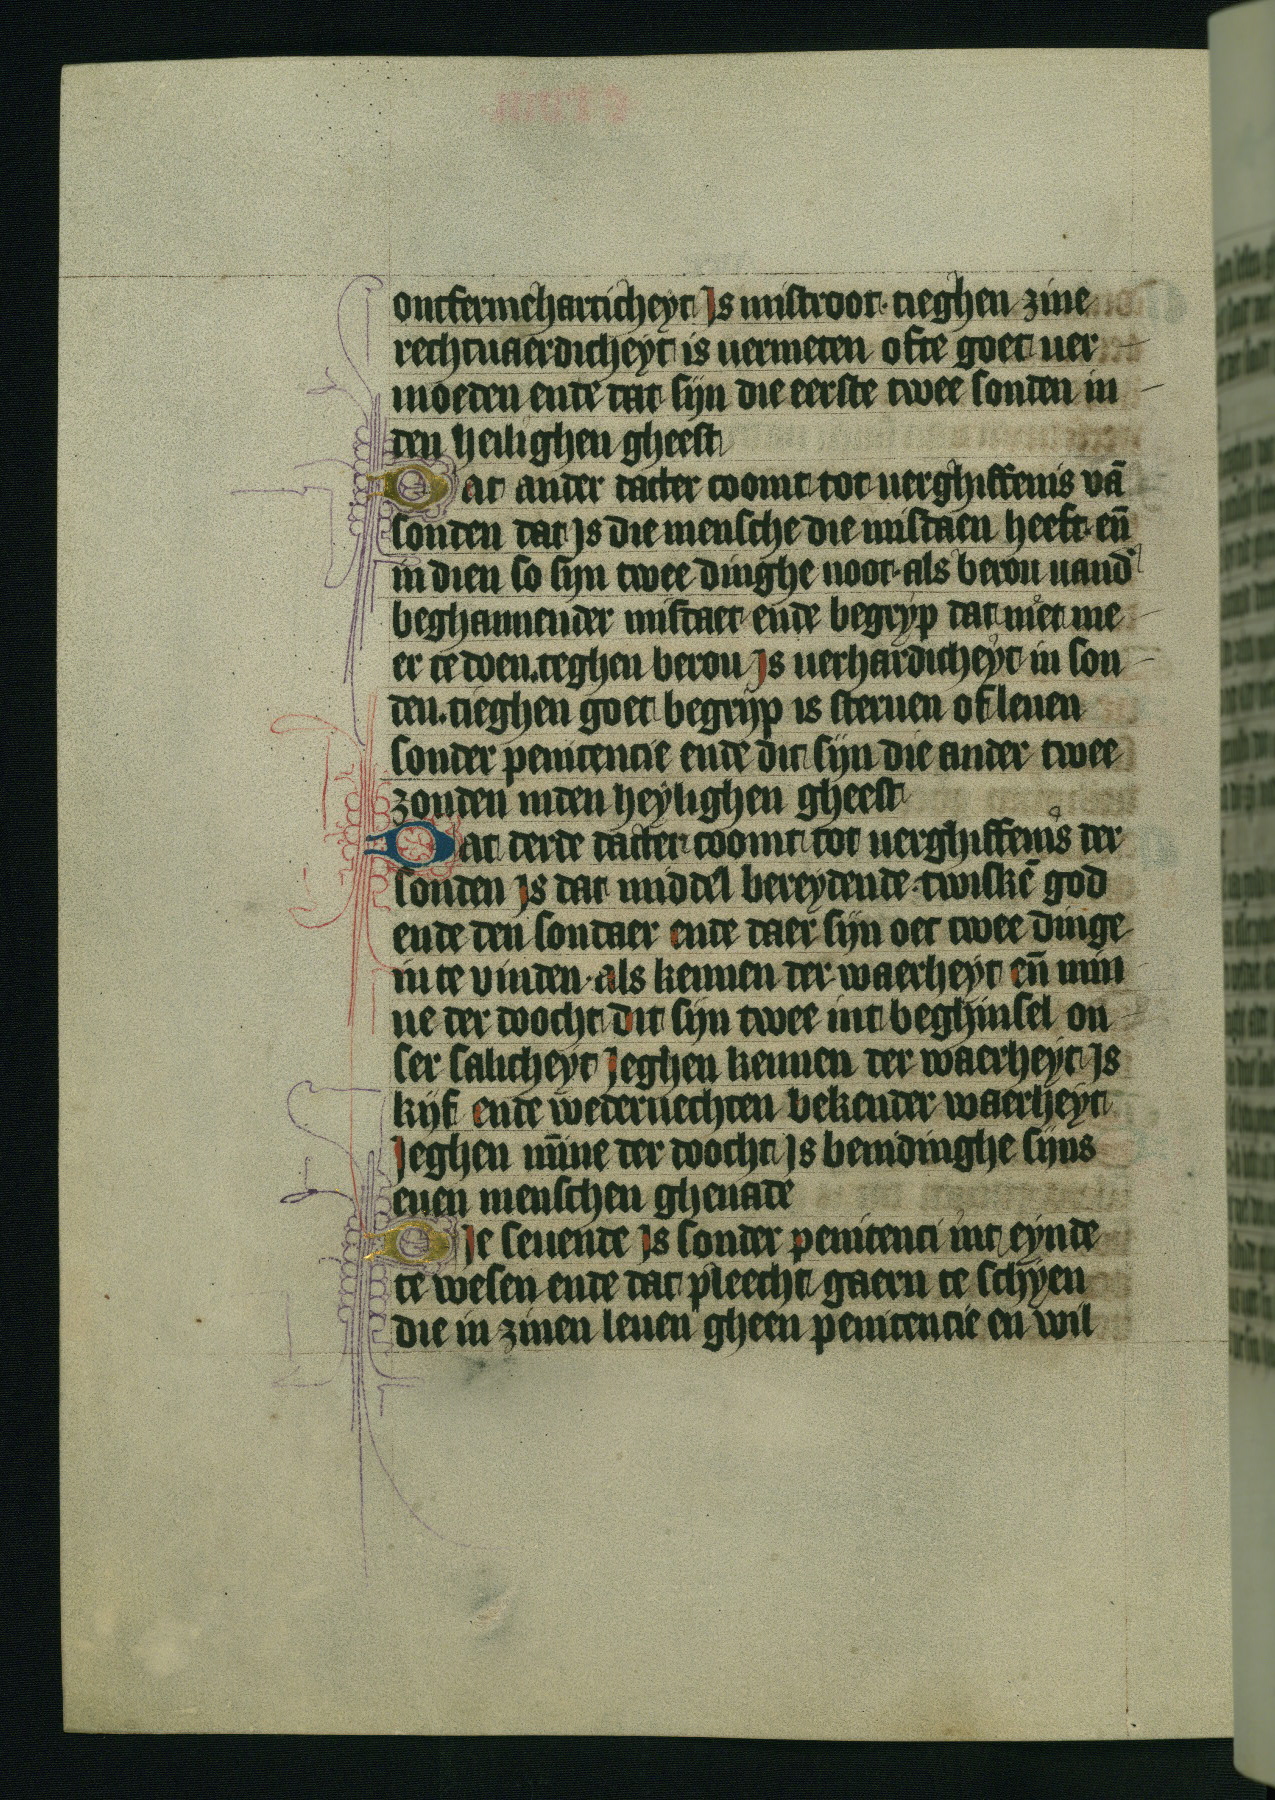 ontfermeharticheyt Js mistroot· tieghen zine
rechtuaerdicheyt is uermeten ofte goet uer
moeden ende dat sijn die eerste twee sonden in
den heilighen gheest
Dat ander datter coomt tot uerghiffenis vā
sonden dat Js die mensche die misdaen heeft· en̄
in dien so sijn twee dinghe noot· als berou uand'
beghannender misdaet ende begrijp dat niet me
er te doen. teghen berou Js uerhardicheyt in son
den. tieghen goet begrijp is steruen of leuen
sonder penitencie ende dit sijn die ander twee
zonden inden heylighen gheest
Dat derde datter coomt tot uerghiffenis der
sonden Js dat middel bereydende· twiskē god
ende den sondaer ende daer sijn oec twee dinge
in te vinden· als kennen der waerheyt en̄ min
ne der doocht dit sijn twee int beghinsel on
ser salicheyt Jeghen kennen der waerheyt Js
kijf ende wederuechten bekender waerheyt
Jeghen mīne der doocht Js benidinghe sijns
euen menschen ghenade
DJe seuende Js sonder penitenci int eynde
te wesen ende dat pleecht gaern te schyen
die in zinen leuen gheen penitencie en wil